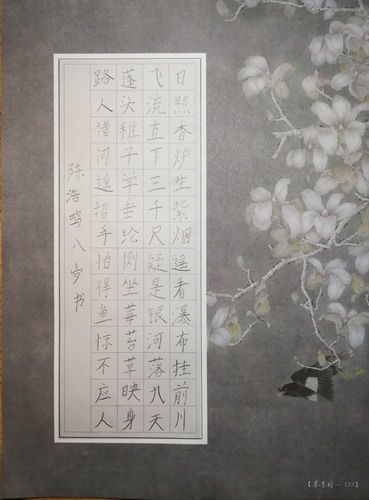 日照香炉生紫烟遥看瀑布挂前川
飞流直下三千尺疑是银河落九天
蓬头稚子学垂纶侧坐莓苔草映身
路人借问遥招手怕得鱼惊不应人
陈浩鸣八岁书